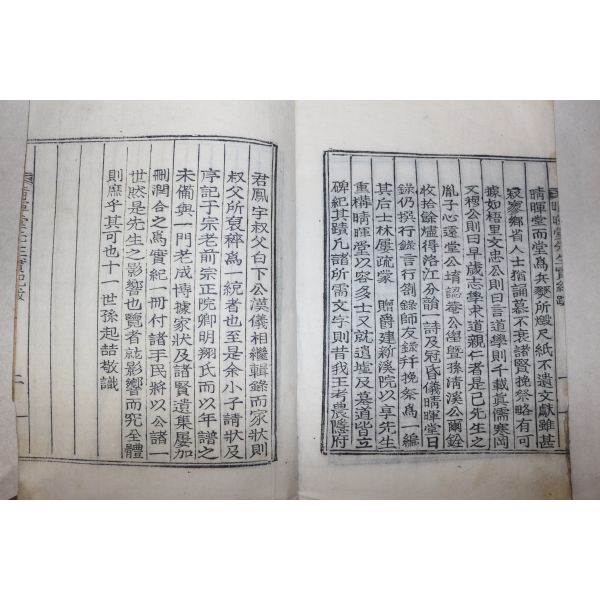 晴暉堂而堂爲兵燹所燬尺紙不遺文獻雖甚
寂寥鄉省人士猶誦慕不衰諸賢挽祭略有可
據如梧里文忠公則曰言道學則千載眞儒寒岡
文穆公則曰早歲志學求道親仁者是已先生之
胤子心遠堂公堉認菴公㙖曁孫淸溪公爾銓
收拾餘燼得洛江分韻一詩及冠昏儀晴暉堂日
錄仍撰行錄言行劄錄師友錄幷挽祭爲一編
其后士林屢疏蒙 贈爵建新溪院以享先生
重構晴暉堂以容多士又就遺墟及墓道皆立
碑紀其蹟凡諸所需文字則昔我王考農隱府
君鳳宇叔父白下公漢儀相繼輯錄而家狀則
叔父所裒稡爲一統者也至是余小子請狀及
序記于宗老前宗正院卿明翔氏而以年譜之
未備與一門老成博據家狀及諸賢遺集屢加
刪潤合之爲實紀一冊付諸手民將以公諸一
世然是先生之影響也覽者就影響而究全體
則庶乎其可也十一世孫起喆敬識